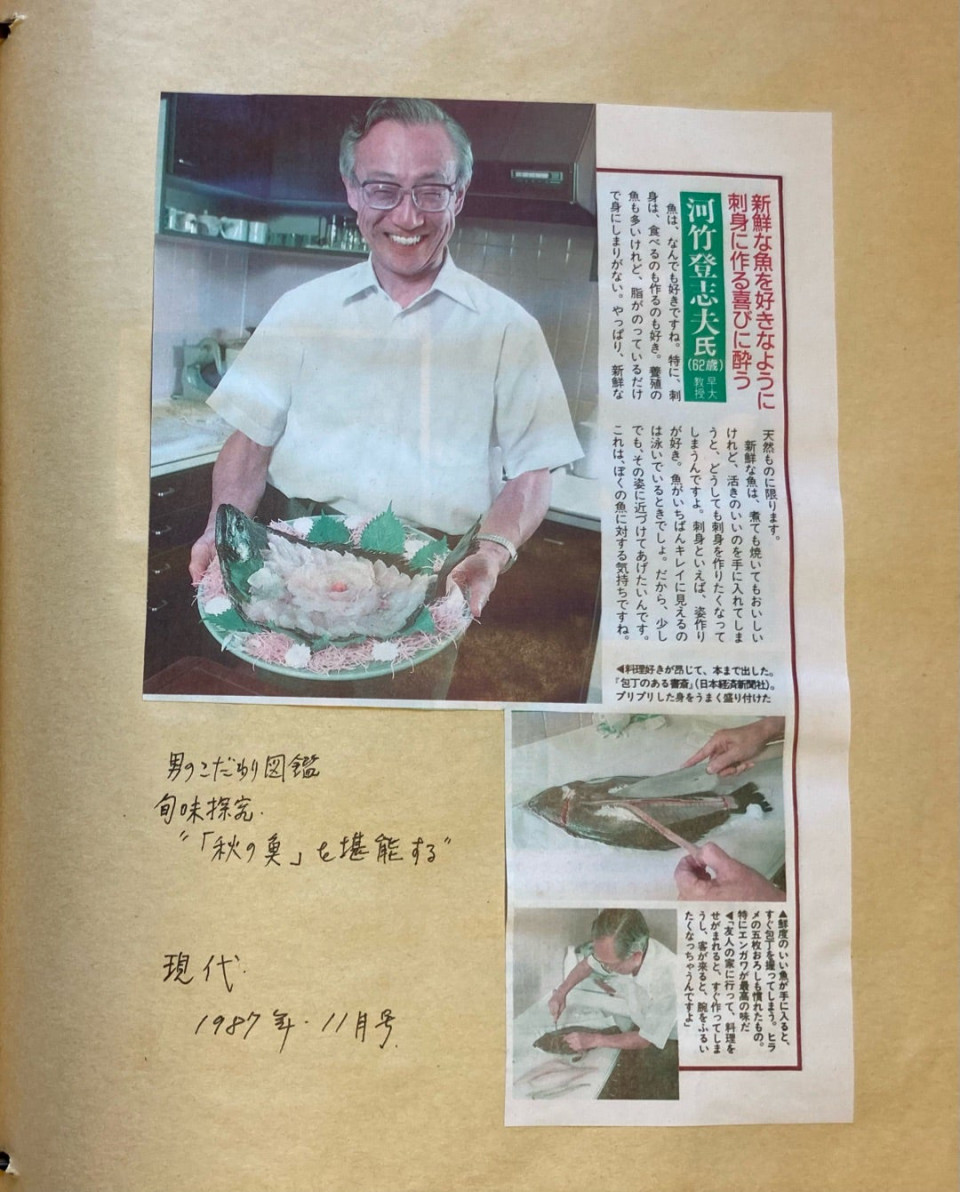 新鮮な魚を好きなように
刺身に作る喜びに酔う
河竹登志夫氏(62歳)早大教授
魚は、なんでも好きですね。特に、刺
身は、食べるのも作るのも好き。養殖の
魚も多いけれど、脂がのっているだけ
で身にしまりがない。やっぱり、新鮮な
天然ものに限ります。
新鮮な魚は、煮ても焼いてもおいしい
けれど、活きのいいのを手に入れてしま
うと、どうしても刺身を作りたくなって
しまうんですよ。刺身といえば、姿作り
が好き。魚がいちばんキレイに見えるの
は泳いでいるときでしょ。だから、少し
でも、その姿に近づけてあげたいんです。
これは、ぼくの魚に対する気持ちですね。
◀料理好きが昂じて、本まで出した。
「包丁のある書斎」(日本経済新聞社)。
プリプリした身をうまく盛り付けた
▲鮮度のいい魚が手に入ると、
すぐ包丁を握ってしまう。ヒラ
メの五枚おろしも慣れたもの。
特にエンガワが最高の味だ
◀「友人の家に行って、料理を
せがまれると、すぐ作ってしま
うし、客が来ると、腕をふるい
たくなっちゃうんですよ」
男のこだわり図鑑
旬味探究.
"「秋の魚」を堪能する"
現代.
1987年・11月号.